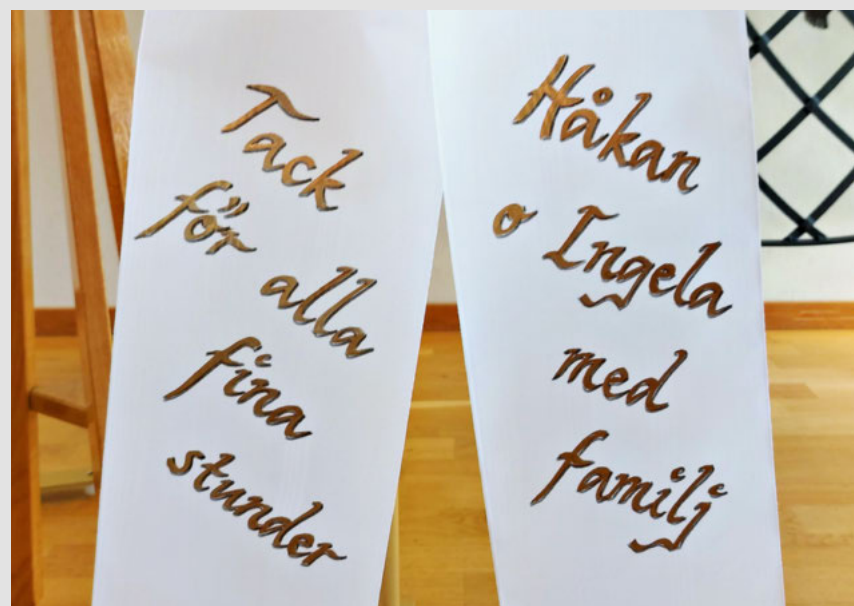 Tack
för alla
fina
stunder
Håkan
o Ingela
med
familj